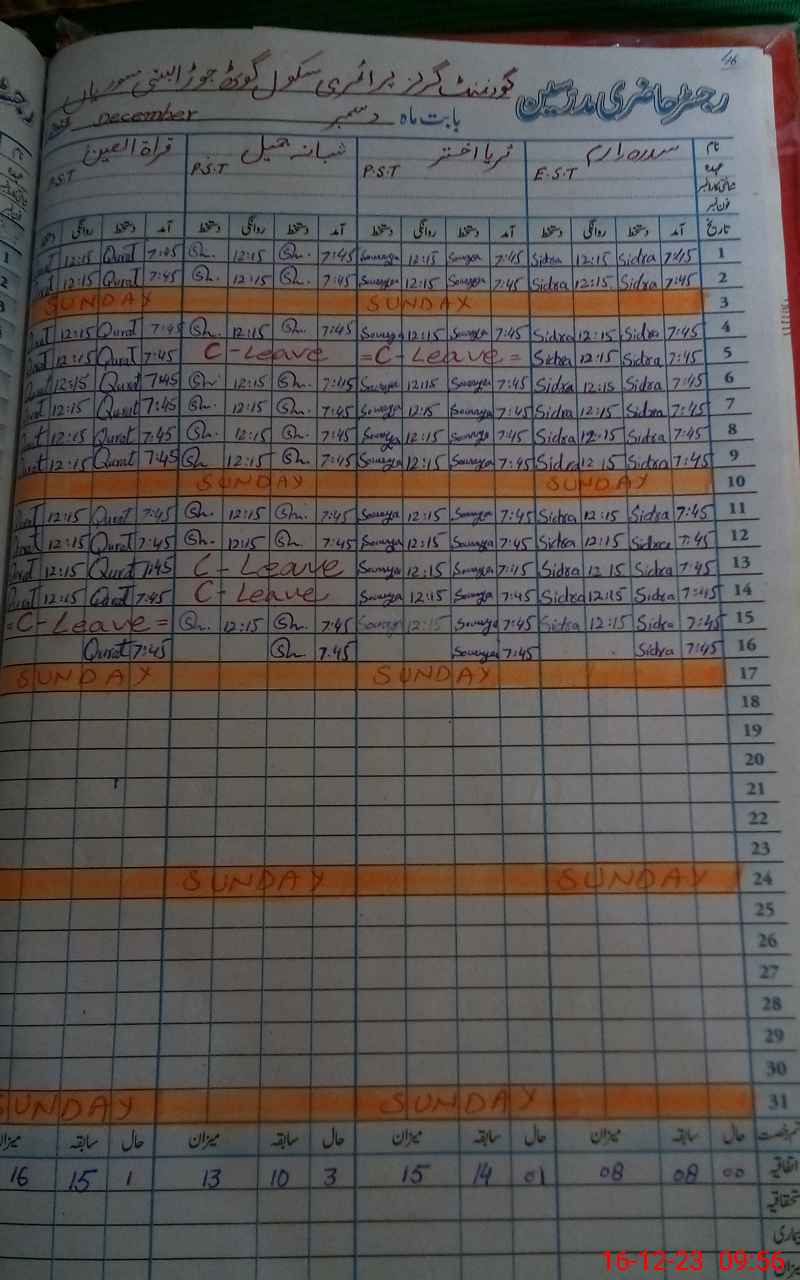 46
رجسٹر حاضری مدرسین گورنمنٹ گرلز پرائمری سکول گوٹھ جوڑا
بابت ماہ دسمبر December
نام سدرہ ارم ثریا اختر شبانہ جمیل قراۃ العین
عہدہ E.S.T P.S.T P.S.T P.S.T
فون نمبر
تاریخ آمد دستخط روانگی دستخط آمد دستخط روانگی دستخط آمد دستخط روانگی دستخط آمد دستخط روانگی دستخط
1 7:45 Sidra 12:15 Sidra 7:45 Sourayya 12:15 Sourayya 7:45 Sh. 12:15 Sh. 7:45 Qurat 12:15 Qurat
2 7:45 Sidra 12:15 Sidra 7:45 Sourayya 12:15 Sourayya 7:45 Sh. 12:15 Sh. 7:45 Qurat 12:15 Qurat
3 SUNDAY SUNDAY
4 7:45 Sidra 12:15 Sidra 7:45 Sourayya 12:15 Sourayya 7:45 Sh. 12:15 Sh. 7:45 Qurat 12:15 Qurat
5 7:45 Sidra 12:15 Sidra = C-Leave = C-Leave 7:45 Qurat 12:15 Qurat
6 7:45 Sidra 12:15 Sidra 7:45 Sourayya 12:15 Sourayya 7:45 Sh. 12:15 Sh. 7:45 Qurat 12:15 Qurat
7 7:45 Sidra 12:15 Sidra 7:45 Sourayya 12:15 Sourayya 7:45 Sh. 12:15 Sh. 7:45 Qurat 12:15 Qurat
8 7:45 Sidra 12:15 Sidra 7:45 Sourayya 12:15 Sourayya 7:45 Sh. 12:15 Sh. 7:45 Qurat 12:15 Qurat
9 7:45 Sidra 12 15 Sidra 7:45 Sourayya 12:15 Sourayya 7:45 Sh. 12:15 Sh 7:45 Qurat 12:15 Qurat
10 SUNDAY SUNDAY
11 7:45 Sidra 12:15 Sidra 7:45 Sourayya 12:15 Sourayya 7:45 Sh. 12:15 Sh. 7:45 Qurat 12:15 Qurat
12 7:45 Sidra 12:15 Sidra 7:45 Sourayya 12:15 Sourayya 7:45 Sh. 12:15 Sh. 7:45 Qurat 12:15 Qurat
13 7:45 Sidra 12 15 Sidra 7:45 Sourayya 12:15 Sourayya C-Leave 7:45 Qurat 12:15 Qurat
14 7:45 Sidra 12:15 Sidra 7:45 Sourayya 12:15 Sourayya C-Leave 7:45 Qurat 12:15 Qurat
15 7:45 Sidra 12:15 Sidra 7:45 Sourayya 12:15 Sourayya 7:45 Sh. 12:15 Sh. = C-Leave =
16 7:45 Sidra 7:45 Sourayya 7.45 Sh. 7:45 Qurat
17 SUNDAY SUNDAY
18
19
20
21
22
23
24 SUNDAY SUNDAY
25
26
27
28
29
30
31 SUNDAY SUNDAY
حال سابقہ میزان حال سابقہ میزان حال سابقہ میزان حال سابقہ میزان
اتفاقیہ 00 08 08 01 14 15 3 10 13 1 15 16
بیماری
میزان
16-12-23 09:56